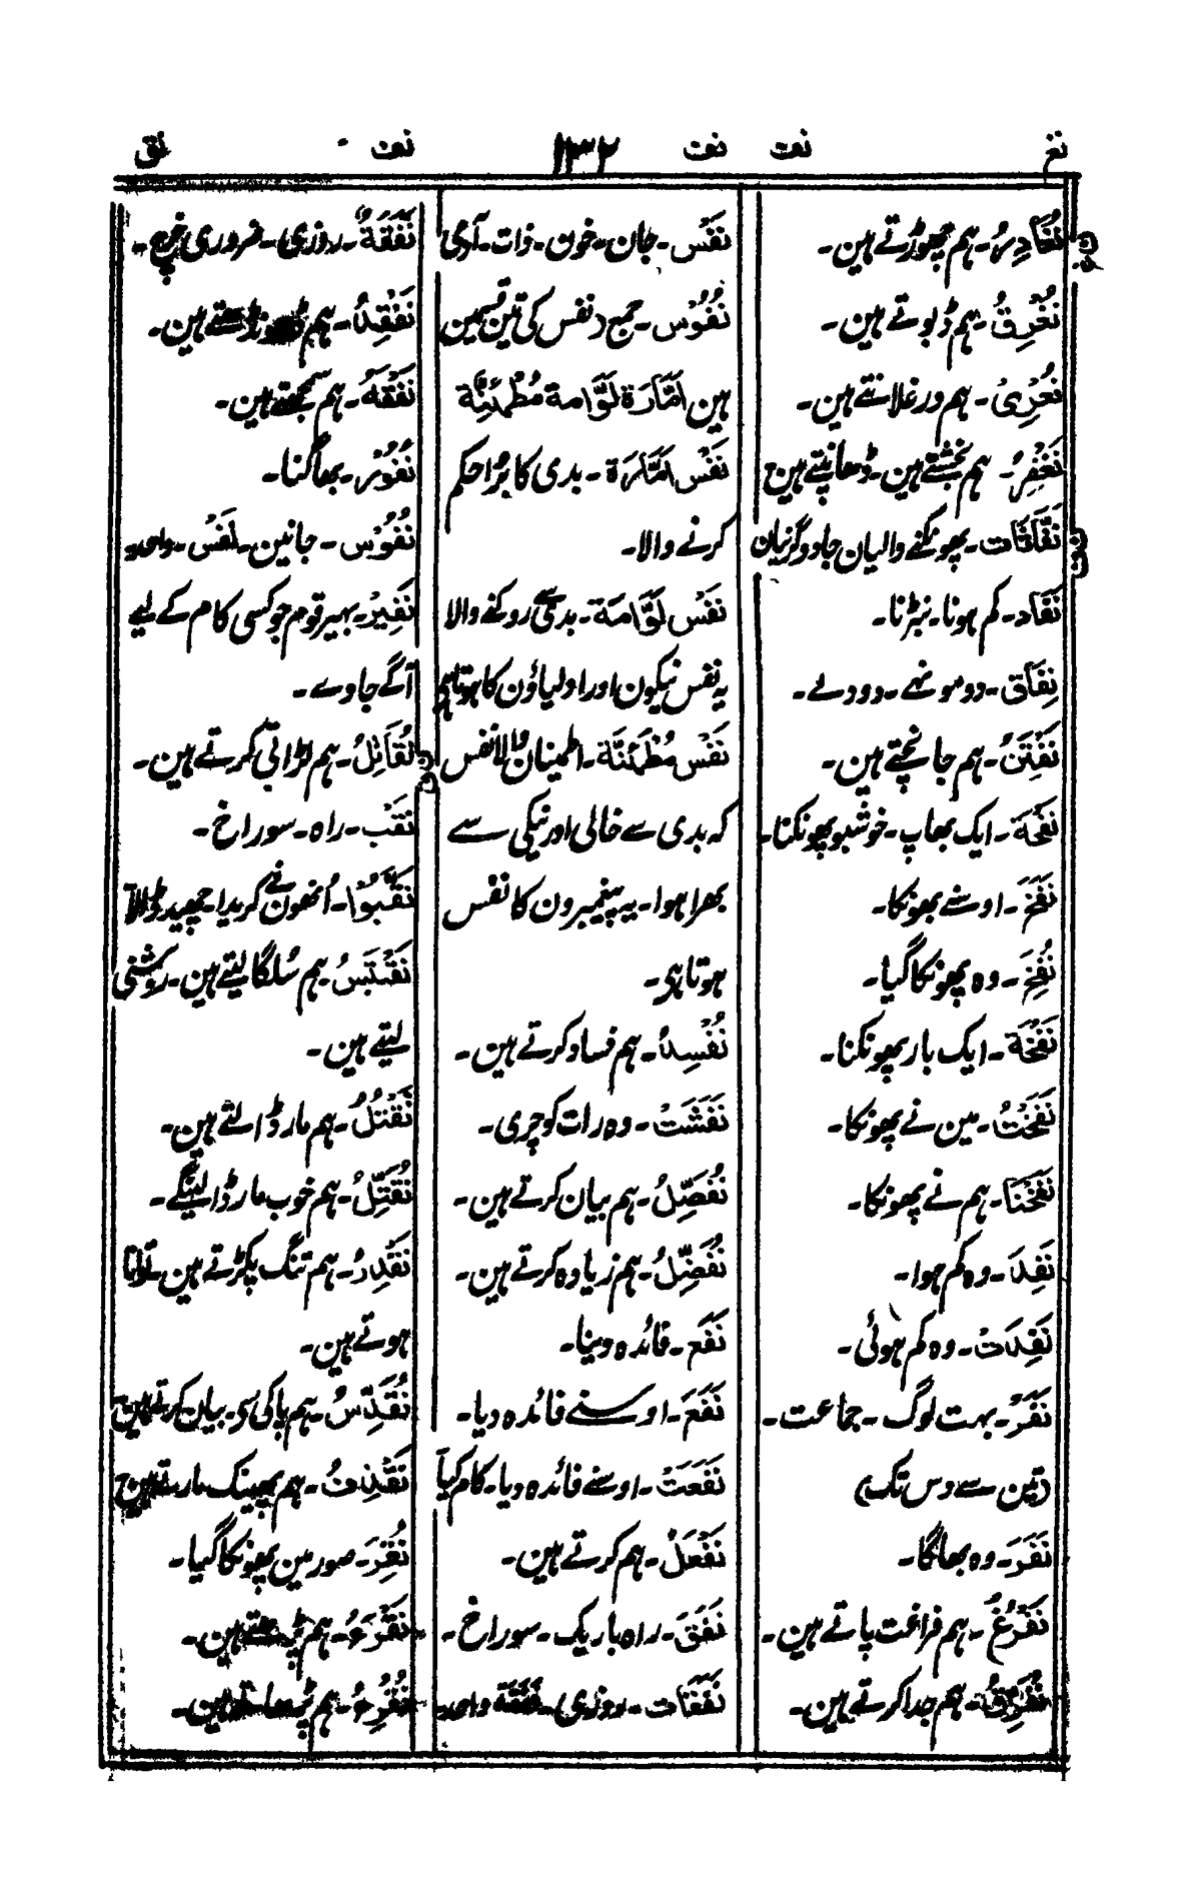 نغ نف نف ۱۳۲ نف نق
نُغَادِرُ۔ ہم چھوڑتے ہین۔
نُغْرِقُ۔ ہم ڈبوتے ہین۔
نُغْرِیُ۔ ہم ورغلانتے ہین۔
نَغْفِرُ۔ ہم بخشتے ہین۔ ڈھانپتے ہین
نَفَّاثَات۔ پھونکنے والیان جادوگرنیان
نَفَاد۔ کم ہونا۔ نبڑنا۔
نِفَاق۔ دومونہے۔ دودلے۔
نَفْتِنُ۔ ہم جانچتے ہین۔
نَفْحَة۔ ایک بھاپ۔ خوشبو پھونکنا۔
نَفَخَ۔ اوسنے پھونکا۔
نُفِخَ۔ وہ پھونکا گیا۔
نَفْخَة۔ ایک بار پھونکنا۔
نَفَخْتُ۔ مین نے پھونکا۔
نَفَخْنَا۔ ہم نے پھونکا۔
نَفِدَ۔ وہ کم ہوا۔
نَفِدَتْ۔ وہ کم ہوئی۔
نَفَرٌ۔ بہت لوگ۔ جماعت۔
(تین سے دس تک)
نَفَرَ۔ وہ بھاگا۔
نَفْرُغُ۔ ہم فراغت پاتے ہین۔
نُفَرِّقُ۔ ہم جدا کرتے ہین۔
نَفْس۔ جان۔ خون۔ ذات۔ آدمی
نُفُوْس۔ جمع دنفس کی تین قسمین
ہین اَمَّارَة لَوَّامة مُطْمَئِنَّة
نَفْس اَمَّارَة۔ بدی کا بڑا حکم
کرنے والا۔
نَفْس لَوَّامَة۔ بدی سے روکنے والا
یہ نفس نیکون اور اولیاؤن کا ہوتا ہی
نَفْس مُطْمَئِنَّة۔ اطمینان والا نفس
کہ بدی سے خالی اور نیکی سے
بھرا ہوا۔ یہ پیغمبرون کا نفس
ہوتا ہی۔
نُفْسِدُ۔ ہم فساد کرتے ہین۔
نَفَشَتْ۔ وہ رات کو چری۔
نُفَصِّلُ۔ ہم بیان کرتے ہین۔
نُفَضِّلُ۔ ہم زیادہ کرتے ہین۔
نَفْع۔ فائدہ دینا۔
نَفَعَ۔ اوسنے فائدہ دیا۔
نَفَعَتْ۔ اوسنے فائدہ دیا۔ کام کیا
نَفْعَلُ۔ ہم کرتے ہین۔
نَفَقَ۔ راہ باریک۔ سوراخ۔
نَفَقَات۔ روزی۔ نَفَقَة واحد
نَفَقَةٌ۔ روزی۔ ضروری خرچ۔
نَفْقِدُ۔ ہم ڈھونڈھتے ہین۔
نَفْقَهُ۔ ہم سمجھتے ہین۔
نُفُوْر۔ بھاگنا۔
نُفُوْس۔ جانین۔ نَفْس۔ واحد
نَفِیْر۔ بہیر قوم جو کسی کام کے لیے
آگے جاوے۔
نُقَاتِلُ۔ ہم لڑائی کرتے ہین۔
نَقْب۔ راہ۔ سوراخ۔
نَقَّبُوْا۔ اُنھون نے کریدا۔ چھید ڈالا
نَقْتَبِسُ۔ ہم سُلگا لیتے ہین۔ روشنی
لیتے ہین۔
نَقْتُلُ۔ ہم مار ڈالتے ہین۔
نُقَتِّلُ۔ ہم خوب مار ڈالینگے۔
نَقْدِرُ۔ ہم تنگ پکڑتے ہین توانا
ہوتے ہین۔
نُقَدِّسُ۔ ہم پاکی سی بیان کرتے ہین
نَقْذِفُ۔ ہم پھینک مارتے ہین
نُقِرَ۔ صور مین پھونکا گیا۔
نَقْرَءُ۔ ہم پڑھتے ہین۔
نُقْرِءُ۔ ہم پڑھاتے ہین۔